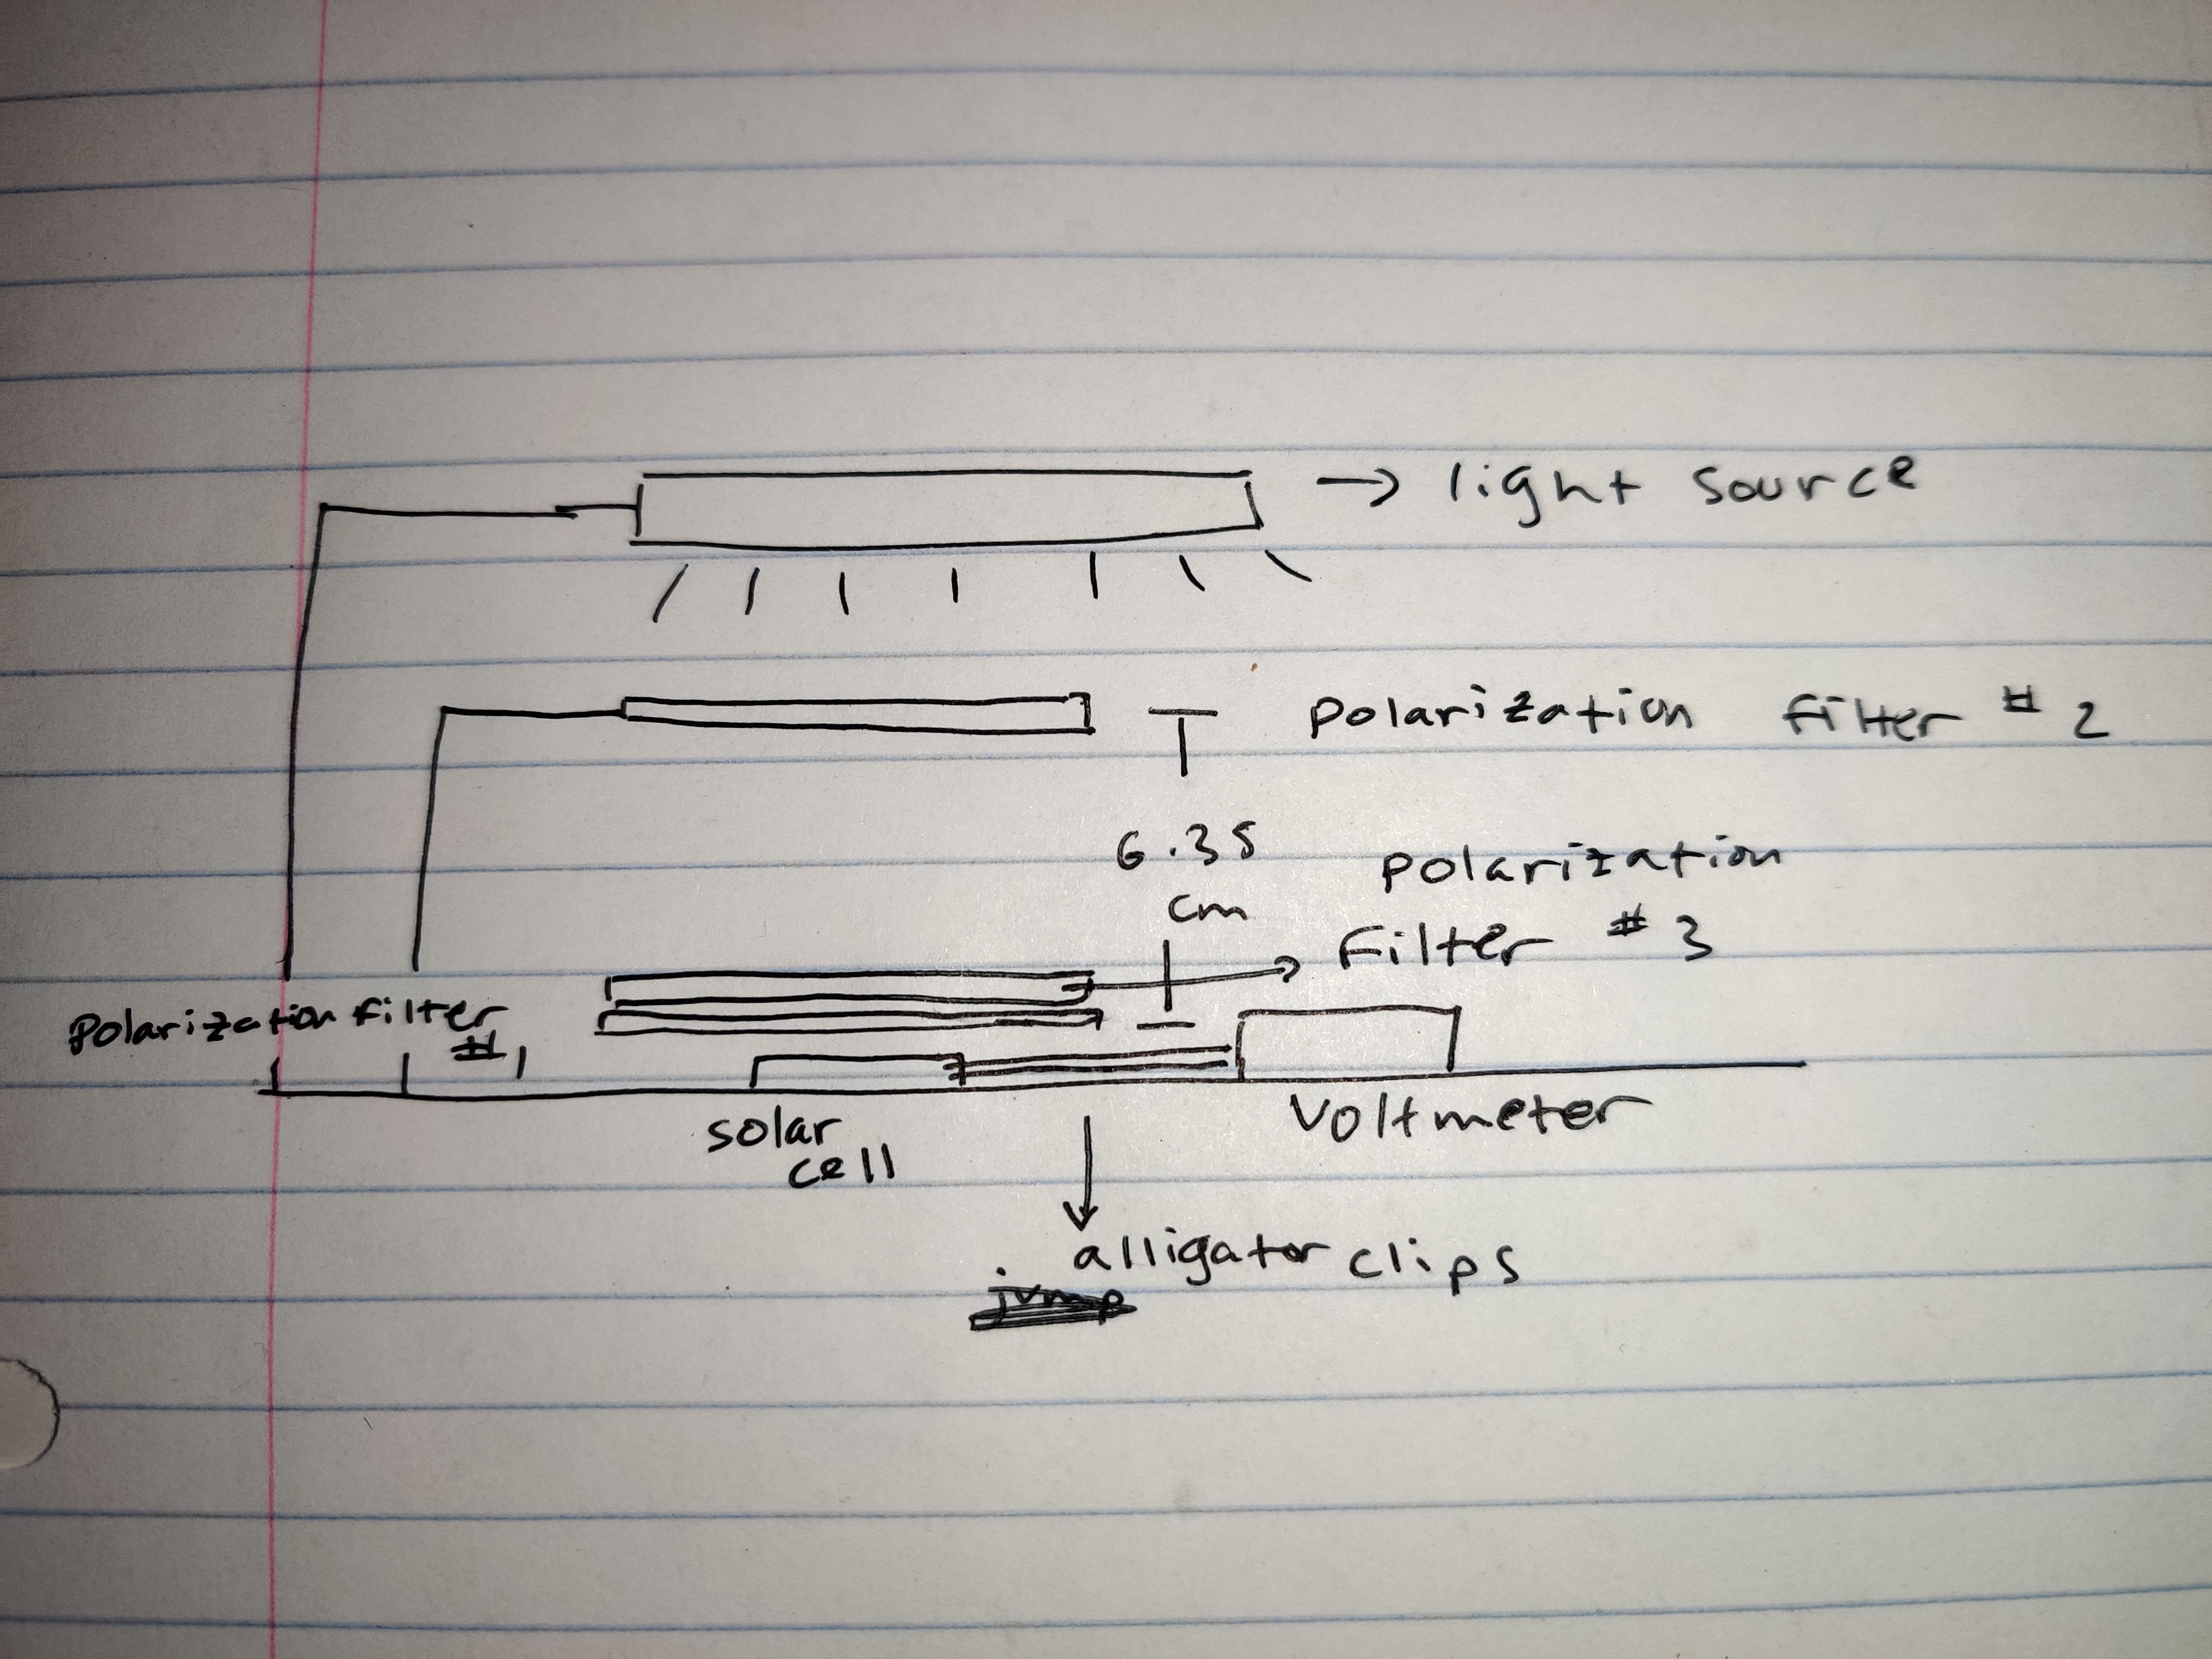 → light source
polarization filter # 2
6.35
cm
polarization
Filter # 3
Polarization filter
#1
solar
cell
Voltmeter
alligator clips
jump